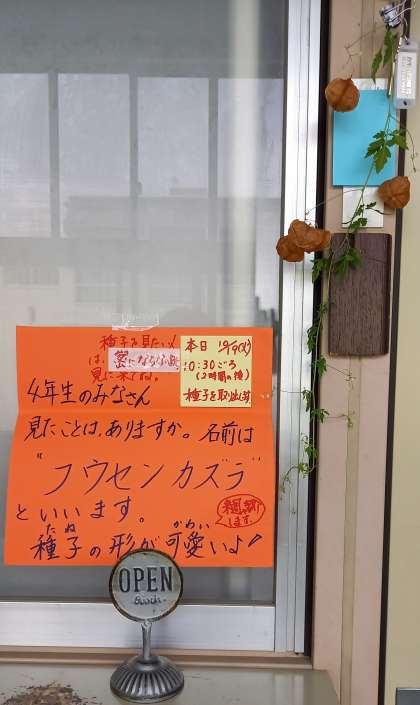 種子を見たい人
は、
見に来てね。
本日 10/9(火)
10:30ごろ
(2時間の後)
種子を取り出します
4年生のみなさん
見たことは、ありますか。名前は
"フウセンカズラ"
といいます。
します。
たね かわい
種子の形が可愛いよ!
OPEN